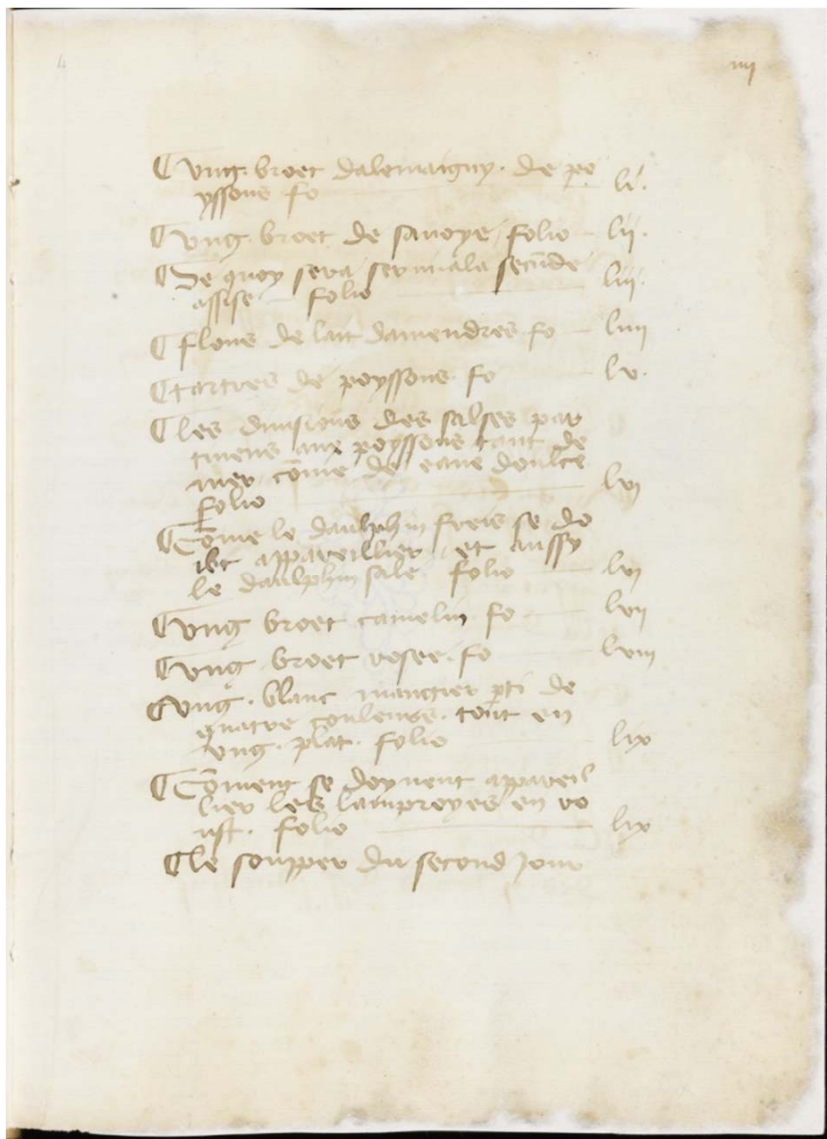 4
iiij
Ung. broet dalemaigny. de po
yssons fo li.
Ung. broet de savoye, folio lij.
De quoy sera servi a la secūde
assise folio liij.
flons de lait damendres fo liiij
tartres de poyssons. fo lv.
les divisions des salses par
tinens aux poyssons tant de
mer cōme de eaue doulce
folio lvj
Cōme le daulphin freis se do
ibt appareillier, et aussy
le daulphin sale. folio lvj
Ung broet camelin fo lvij
Ung broet rosee. fo lviij
Ung. blanc mangier pti de
quatre couleurs. tout en
ung. plat. folio lix
Cōment se doyvent appareil
lier les lamproyes en ro
ust. folio lix
le soupper du second jour